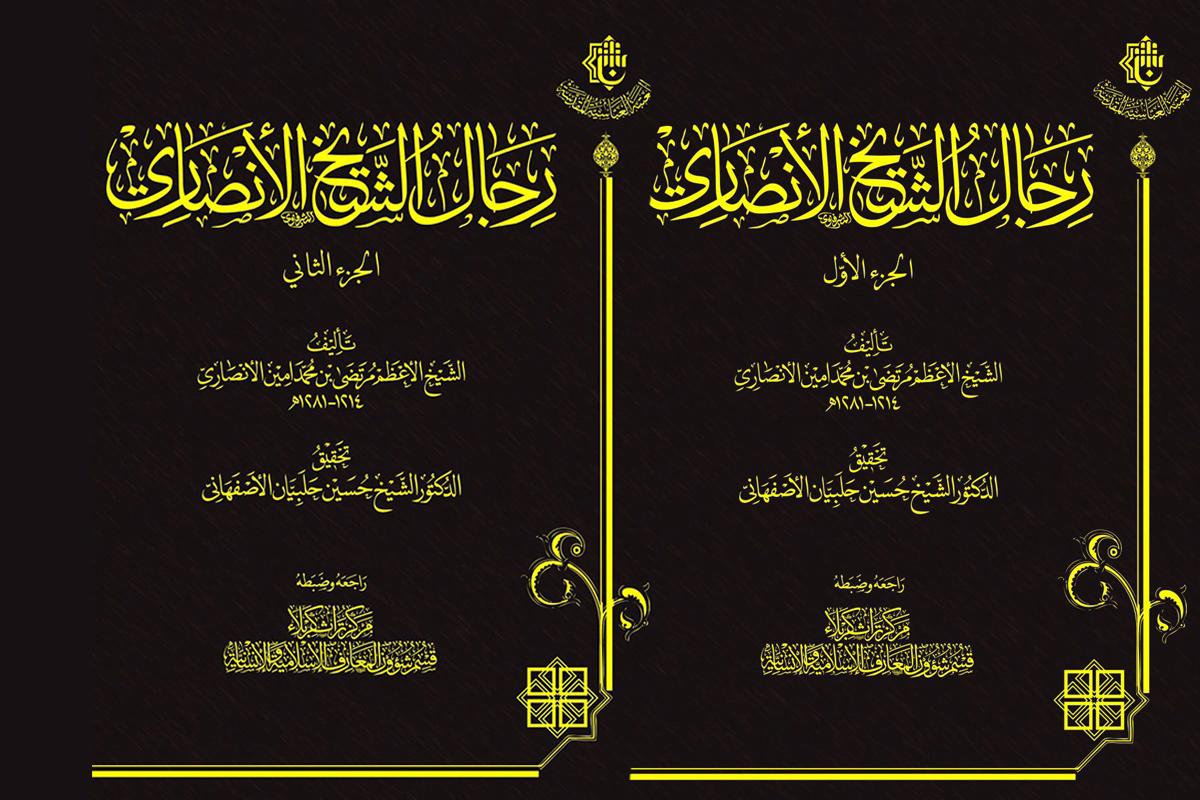 العتبة العباسية المقدسة
رجال الشيخ الأنصاري
الجزء الأوّل
تأليف
الشيخ الأعظم مرتضى بن محمد أمين الأنصاري
١٢١٤-١٢٨١هـ
تحقيق
الدكتور الشيخ حسين حلبيان الأصفهاني
راجعه وضبطه
مركز تراث كربلاء
قسم شؤون المعارف الإسلامية والإنسانية
العتبة العباسية المقدسة
رجال الشيخ الأنصاري
الجزء الثاني
تأليف
الشيخ الأعظم مرتضى بن محمد أمين الأنصاري
١٢١٤-١٢٨١هـ
تحقيق
الدكتور الشيخ حسين حلبيان الأصفهاني
راجعه وضبطه
مركز تراث كربلاء
قسم شؤون المعارف الإسلامية والإنسانية